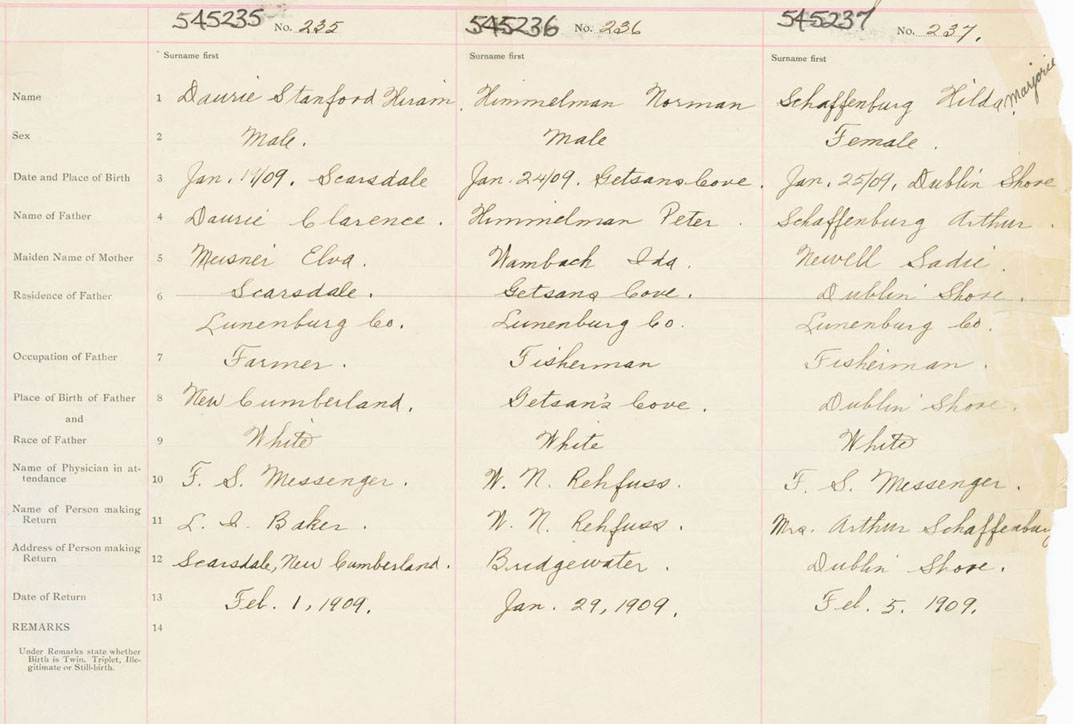 545235 No. 235 545236 No. 236 545237 No. 237.
Surname first Surname first Surname first
Name 1 Daurie Stanford Hiram Himmelman Norman Schaffenburg Hilda Marjorie
Sex 2 Male. Male Female.
Date and Place of Birth 3 Jan. /09. Scarsdale Jan. 24/09. Getsans Cove. Jan. 25/09, Dublin Shore
Name of Father 4 Daurie Clarence. Himmelman Peter. Schaffenburg Arthur.
Maiden Name of Mother 5 Meisner Elva. Wamback Ida. Newell Sadie.
Residence of Father 6 Scarsdale. Getsans Cove. Dublin Shore.
Lunenburg Co. Lunenburg Co. Lunenburg Co.
Occupation of Father 7 Farmer. Fisherman Fisherman.
Place of Birth of Father 8 New Cumberland. Getsan's Cove. Dublin Shore.
and
Race of Father 9 White White White
Name of Physician in at-
tendance 10 F. S. Messenger. W. N. Rehfuss. F. S. Messenger.
Name of Person making
Return 11 L. I. Baker. W. N. Rehfuss. Mrs. Arthur Schaffenburg
Address of Person making
Return 12 Scarsdale, New Cumberland. Bridgewater. Dublin Shore.
Date of Return 13 Feb. 1, 1909. Jan. 29, 1909. Feb. 5. 1909.
REMARKS 14
Under Remarks state whether
Birth is Twin, Triplet, Ille-
gitimate or Still-birth.